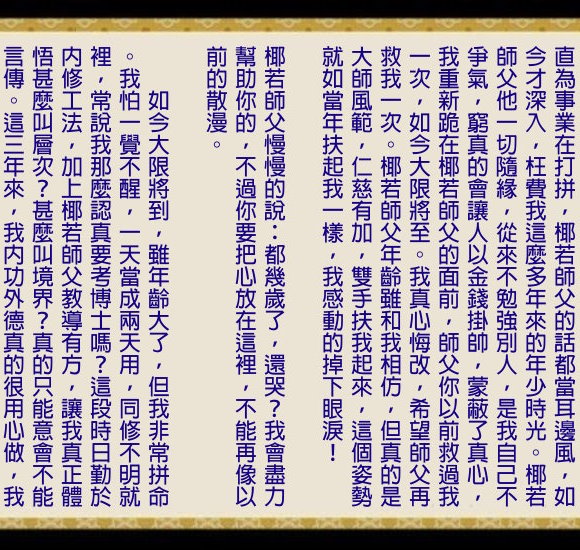 直為事業在打拼，椰若師父的話都當耳邊風，如
今才深入，枉費我這麼多年來的年少時光。椰若
師父他一切隨緣，從來不勉強別人，是我自己不
爭氣，窮真的會讓人以金錢掛帥，蒙蔽了真心，
我重新跪在椰若師父的面前，師父你以前救過我
一次，如今大限將至。我真心悔改，希望師父再
救我一次。椰若師父年齡雖和我相仿，但真的是
大師風範，仁慈有加，雙手扶我起來，這個姿勢
就如當年扶起我一樣，我感動的掉下眼淚！
椰若師父慢慢的說：都幾歲了，還哭？我會盡力
幫助你的，不過你要把心放在這裡，不能再像以
前的散漫。
如今大限將到，雖年齡大了，但我非常拼命
。我怕一覺不醒，一天當成兩天用，同修不明就
裡，常說我那麼認真要考博士嗎？這段時日勤於
內修工法，加上椰若師父教導有方，讓我真正體
悟甚麼叫層次？甚麼叫境界？真的只能意會不能
言傳。這三年來，我內功外德真的很用心做，我